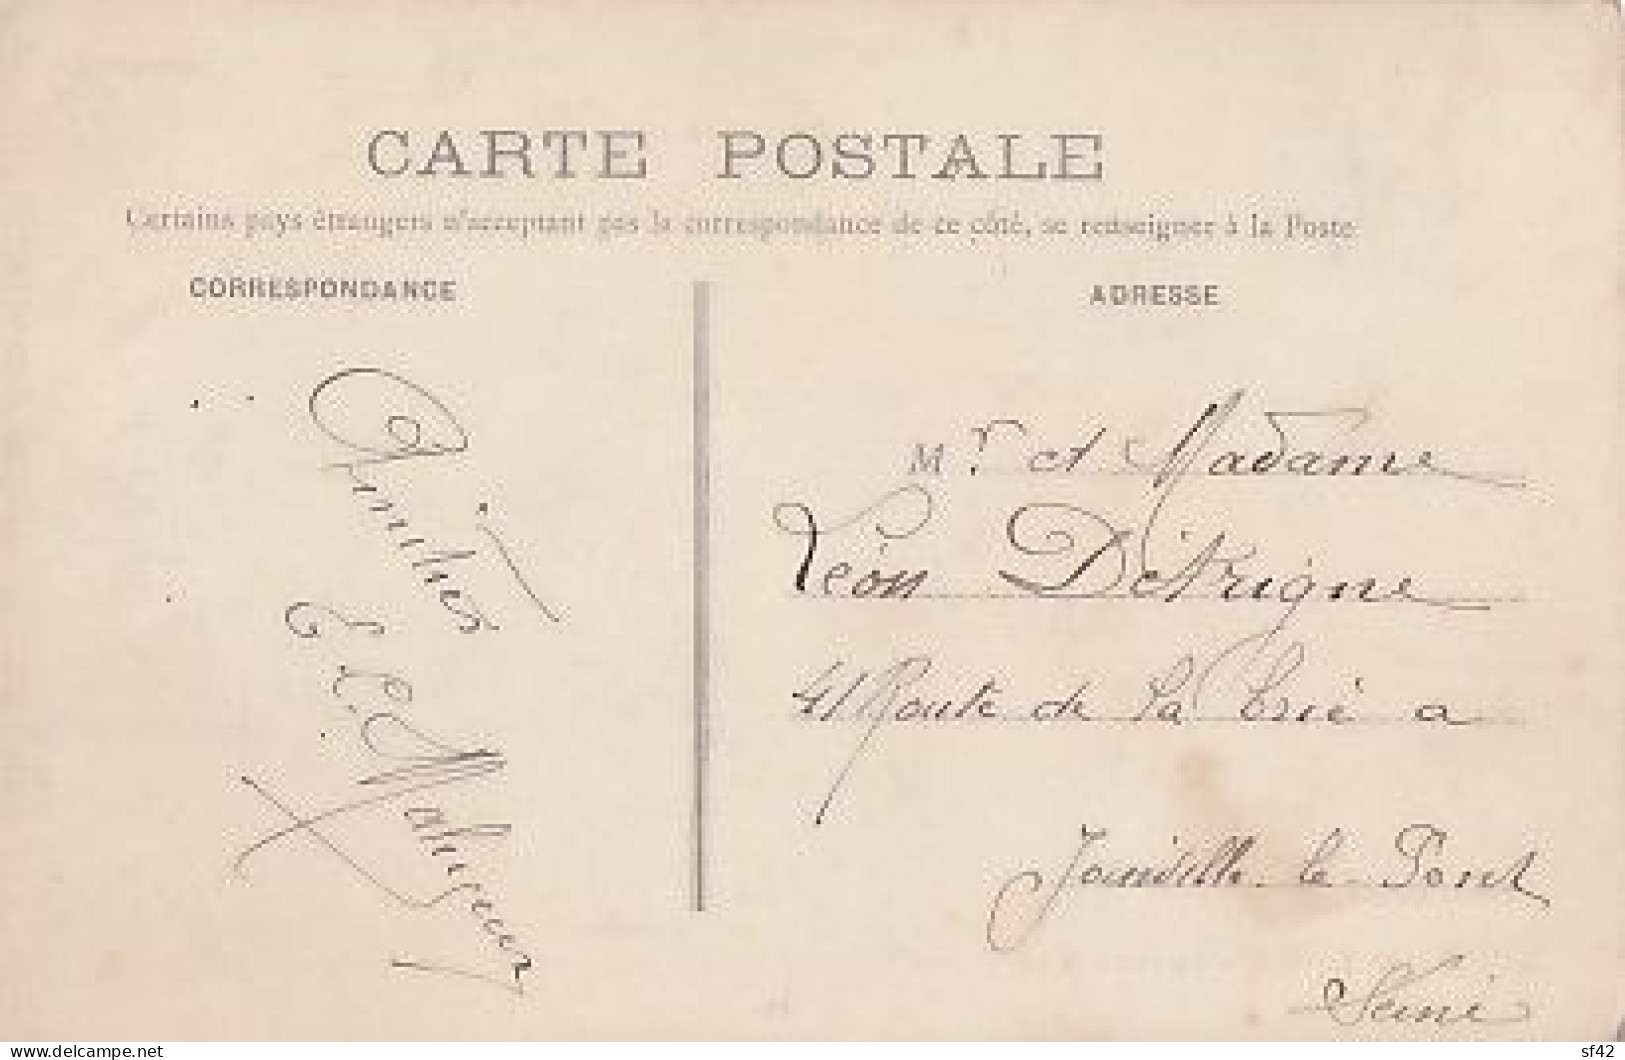 CARTE POSTALE
Certains pays étrangers n'acceptant pas la correspondance de ce côté, se renseigner à la Poste
CORRESPONDANCE
ADRESSE
Amitiés
Mr et Madame
Léon Détrigne
41 Route de La Brie a
Joinville le Pont
Seine
delcampe.net
sf42